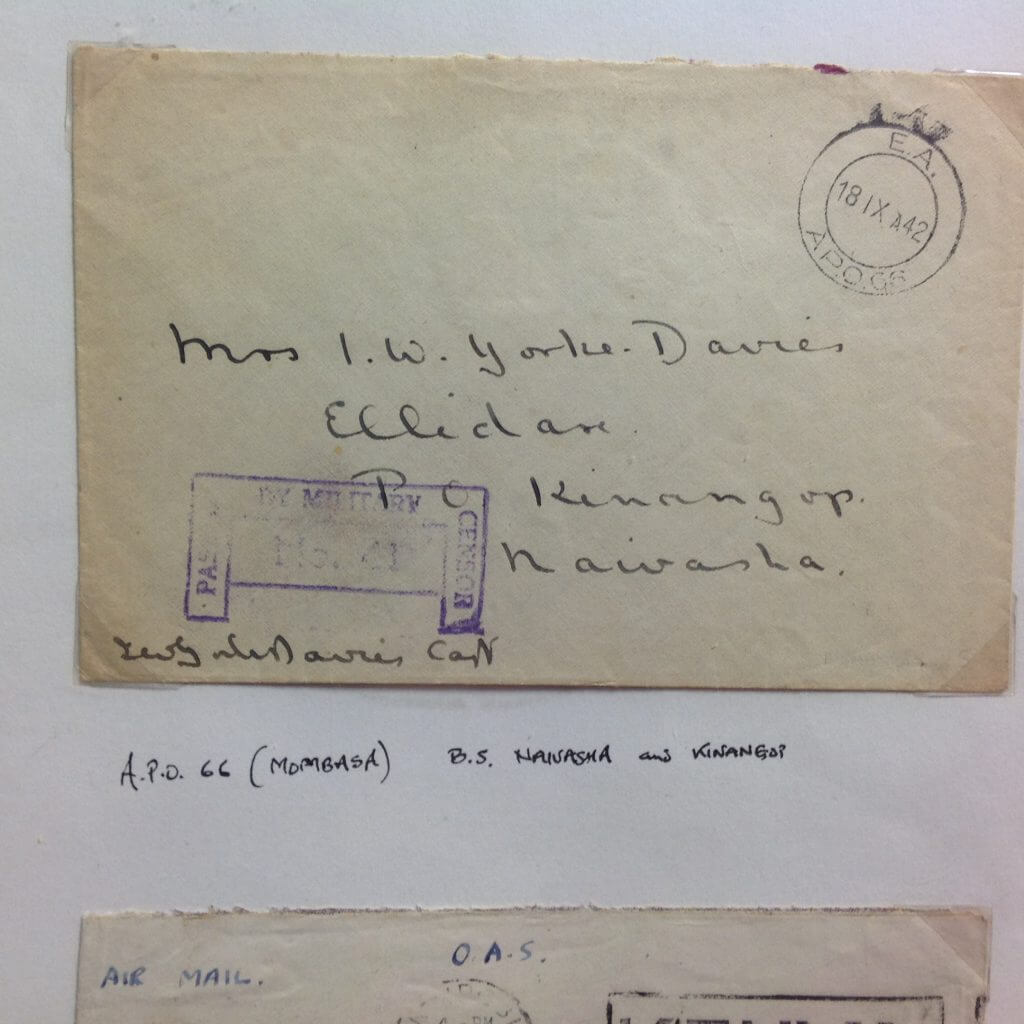 E.A.
18 IX A42
A.P.O. 66
Mrs I. W. Yorke-Davies
Ellidare.
P O Kinangop.
Naivasha.
PASSED BY MILITARY CENSOR
Yorke Davies Capt
A.P.O. 66 (MOMBASA) B.S. NAIVASHA and KINANGOP
O.A.S.
AIR MAIL.